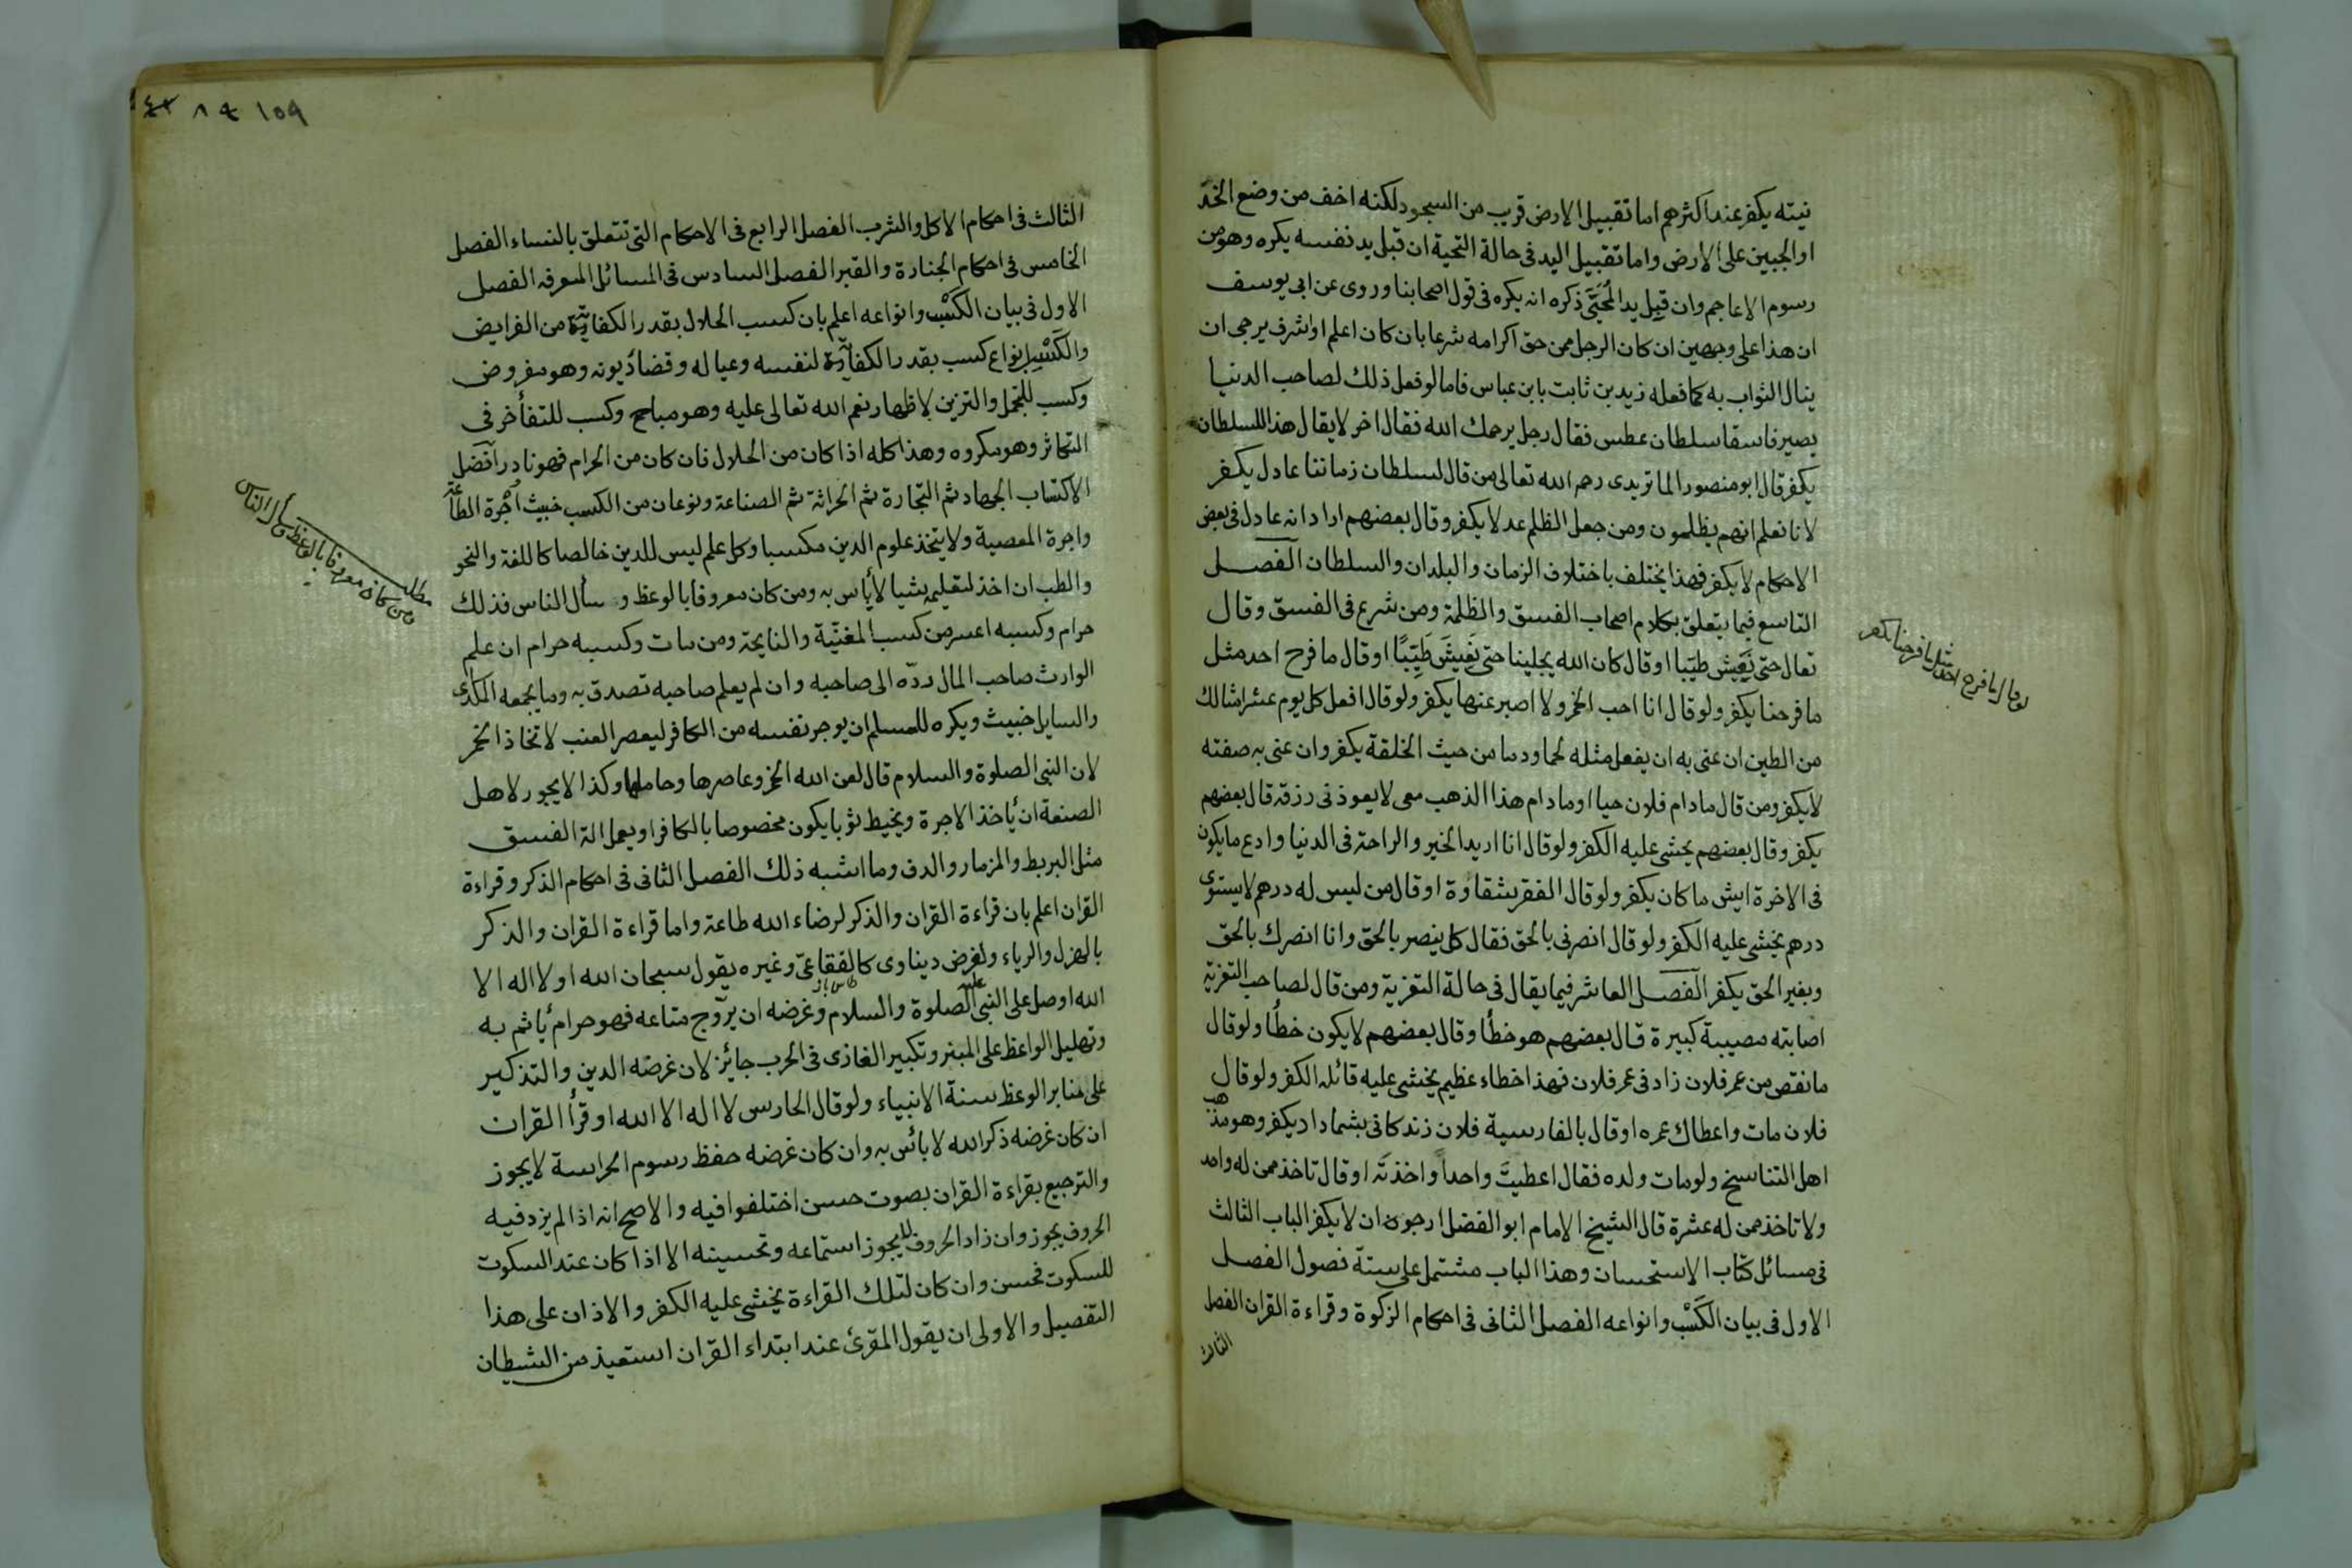 نيته يكفر عند اكثرهم اما تقبيل الارض قريب من السجود لكنه اخف من وضع الخد
او الجبين على الارض واما تقبيل اليد فى حالة التحية ان قبل يد نفسه يكره وهو من
رسوم الاعاجم وان قبل يد المُحَيَّى ذكره انه يكره فى قول اصحابنا وروى عن ابى يوسف
ان هذا على وجهين ان كان الرجل ممن حق اكرامه شرعا بان كان اعلم او اشرف يرجى ان
ينال الثواب به كما فعله زيد بن ثابت بابن عباس فاما لو فعل ذلك لصاحب الدنيا
يصير فاسقا سلطان عطس فقال رجل يرحمك الله فقال اخر لا يقال هذا للسلطان
يكفر قال ابو منصور الماتريدى رحمه الله تعالى من قال لسلطان زماننا عادل يكفر
لانا نعلم انهم يظلمون ومن جعل الظلم عدلا يكفر وقال بعضهم اراد انه عادل فى بعض
الاحكام لا يكفر فهذا يختلف باختلاف الزمان والبلدان والسلطان الفصل
التاسع فيما يتعلق بكلام اصحاب الفسق والظلمة ومن شرع فى الفسق وقال
تعال حتى نَعِيش طيّبا او قال كان الله يجلينا حتى نَعِيشَ طَيِّبًا او قال ما فرح احد مثل
ما فرحنا يكفر ولو قال انا احب الخمر ولا اصبر عنها يكفر ولو قال افعل كل يوم عشر امثالك
من الطين ان عنى به ان يفعل مثله لحما ودما من حيث الخلقة يكفر وان عنى به صفته
لا يكفر ومن قال ما دام فلان حيا او ما دام هذا الذهب معى لا يعوذنى رزقه قال بعضهم
يكفر وقال بعضهم يخشى عليه الكفر ولو قال انا اريد الخير والراحة فى الدنيا وادع ما يكون
فى الاخرة ايش ما كان يكفر ولو قال الفقر شقاوة او قال من ليس له درهم لا يستوى
درهم يخشى عليه الكفر ولو قال انصرنى بالحق فقال كل ينصر بالحق وانا انصرك بالحق
وبغير الحق يكفر الفصل العاشر فيما يقال فى حالة التعزية ومن قال لصاحب التعزية
اصابته مصيبة كبيرة قال بعضهم هو خطأ وقال بعضهم لا يكون خطأ ولو قال
ما نقص من عمر فلان زاد فى عمر فلان فهذا خطاء عظيم يخشى عليه قائله الكفر ولو قال
فلان مات واعطاك عمره او قال بالفارسية فلان زندكانى بشما داد يكفر وهو مذهب
اهل التناسخ ولو مات ولده فقال اعطيتَ واحداً واخذتَه او قال تاخذ ممن له واحد
ولا تاخذ ممن له عشرة قال الشيخ الامام ابو الفضل ارجو ان لا يكفر الباب الثالث
فى مسائل كتاب الاستحسان وهذا الباب مشتمل على ستة فصول الفصل
الاول فى بيان الكَسْب وانواعه الفصل الثانى فى احكام الزكوة وقراءة القران الفصل
الثالث
لو قال ما فرح احد مثل ما فرحنا يكفر
١٥٩
الثالث فى احكام الاكل والشرب الفصل الرابع فى الاحكام التى تتعلق بالنساء الفصل
الخامس فى احكام الجنازة والقبر الفصل السادس فى المسائل المعرفه الفصل
الاول فى بيان الكَسْب وانواعه اعلم بان كسب الحلال بقدر الكفاية من الفرايض
والكَسْب انواع كسب بقدر الكفاية لنفسه وعياله وقضا ديونه وهو مفروض
وكسب للتجمل والتزين لاظهار نعم الله تعالى عليه وهو مباح وكسب للتفأخر فى
التكاثر وهو مكروه وهذا كله اذا كان من الحلال فان كان من الحرام فهو نادر افضل
الاكتساب الجهاد ثم التجارة ثم الحراثة ثم الصناعة ونوعان من الكسب خبيث اجرة الطاعة
واجرة المعصية ولا يتخذ علوم الدين مكسبا وكل علم ليس للدين خالصا كاللغة والنحو
والطب ان اخذ لتعليمه شيا لا بأس به ومن كان معروفا بالوعظ وسأل الناس فذلك
حرام وكسبه اعسر من كسب المغنّية والنايحة ومن مات وكسبه حرام ان علم
الوارث صاحب المال ردّه الى صاحبه وان لم يعلم صاحبه تصدق به وما يجمعه المكدى
والسايل خبيث ويكره للمسلم ان يوجر نفسه من الكافر ليعصر العنب لاتخاذ الخمر
لان النبى الصلوة والسلام قال لعن الله الخمر وعاصرها وحاملها وكذا لا يجوز لاهل
الصنعة ان يأخذ الاجرة ويخيط ثوبا يكون مخصوصا بالكافر او يعمل الة الفسق
مثل البربط والمزمار والدف وما اشبه ذلك الفصل الثانى فى احكام الذكر وقراءة
القران اعلم بان قراءة القران والذكر لرضاء الله طاعة واما قراءة القران والذكر
بالهزل والرياء ولغرض ديناوى كالفقاعىّ وغيره يقول سبحان الله او لا اله الا
الله او صل على النبى عليه الصلوة والسلام وغرضه ان يروّج متاعه فهو حرام يأثم به
وتهليل الواعظ على المنبر وتكبير الغازى فى الحرب جايز لان غرضه الدين والتذكير
على منابر الوعظ سنة الانبياء ولو قال الحارس لا اله الا الله او قرأ القران
ان كان غرضه ذكر الله لا بائس به وان كان غرضه حفظ رسوم الحراسة لا يجوز
والترجيع بقراءة القران بصوت حسن اختلفوا فيه والاصح انه اذا لم يزد فيه
الحروف يجوز وان زاد الحروف لا يجوز استماعه وتحسينه الا اذا كان عند السكوت
للسكوت فحسن وان كان لتلك القراءة يخشى عليه الكفر والاذان على هذا
التفصيل والاولى ان يقول المقرئ عند ابتداء القران استعيذ من الشيطان
مطلب
من كان معروفا بالوعظ سأل الناس